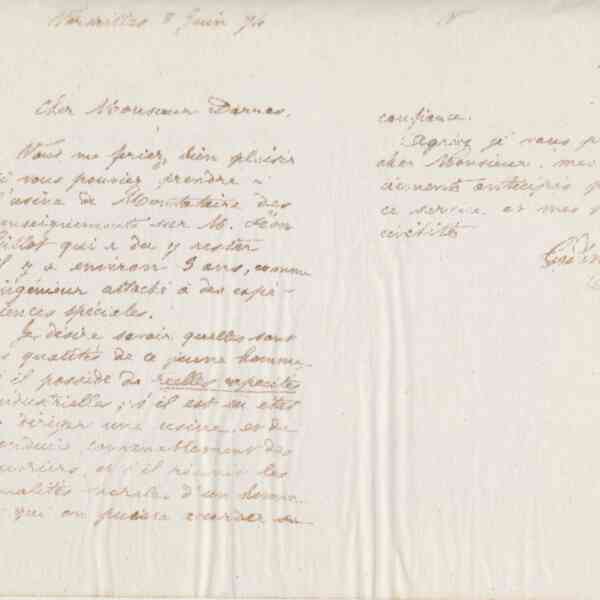 Versailles 8 Juin 74
Cher Monsieur Barnas.
Vous me feriez, bien plaisir
si vous pouviez prendre à
l'usine de Montataire des
renseignements sur M. Léon
qui a du y rester
il y a environ 3 ans, comme
ingénieur attaché à des expé-
riences spéciales.
Je désire savoir quelles sont
les qualités de ce jeune homme
s'il possède de réelles capacités
industrielles; s'il est en état
de diriger une usine, et de
conduire convenablement des
ouvriers, et s'il réunit les
qualités morales d'un homme
à qui on puisse accorder sa
confiance.
Agréez je vous p
cher Monsieur, mes
ciements anticipés p
ce service et mes
civilités